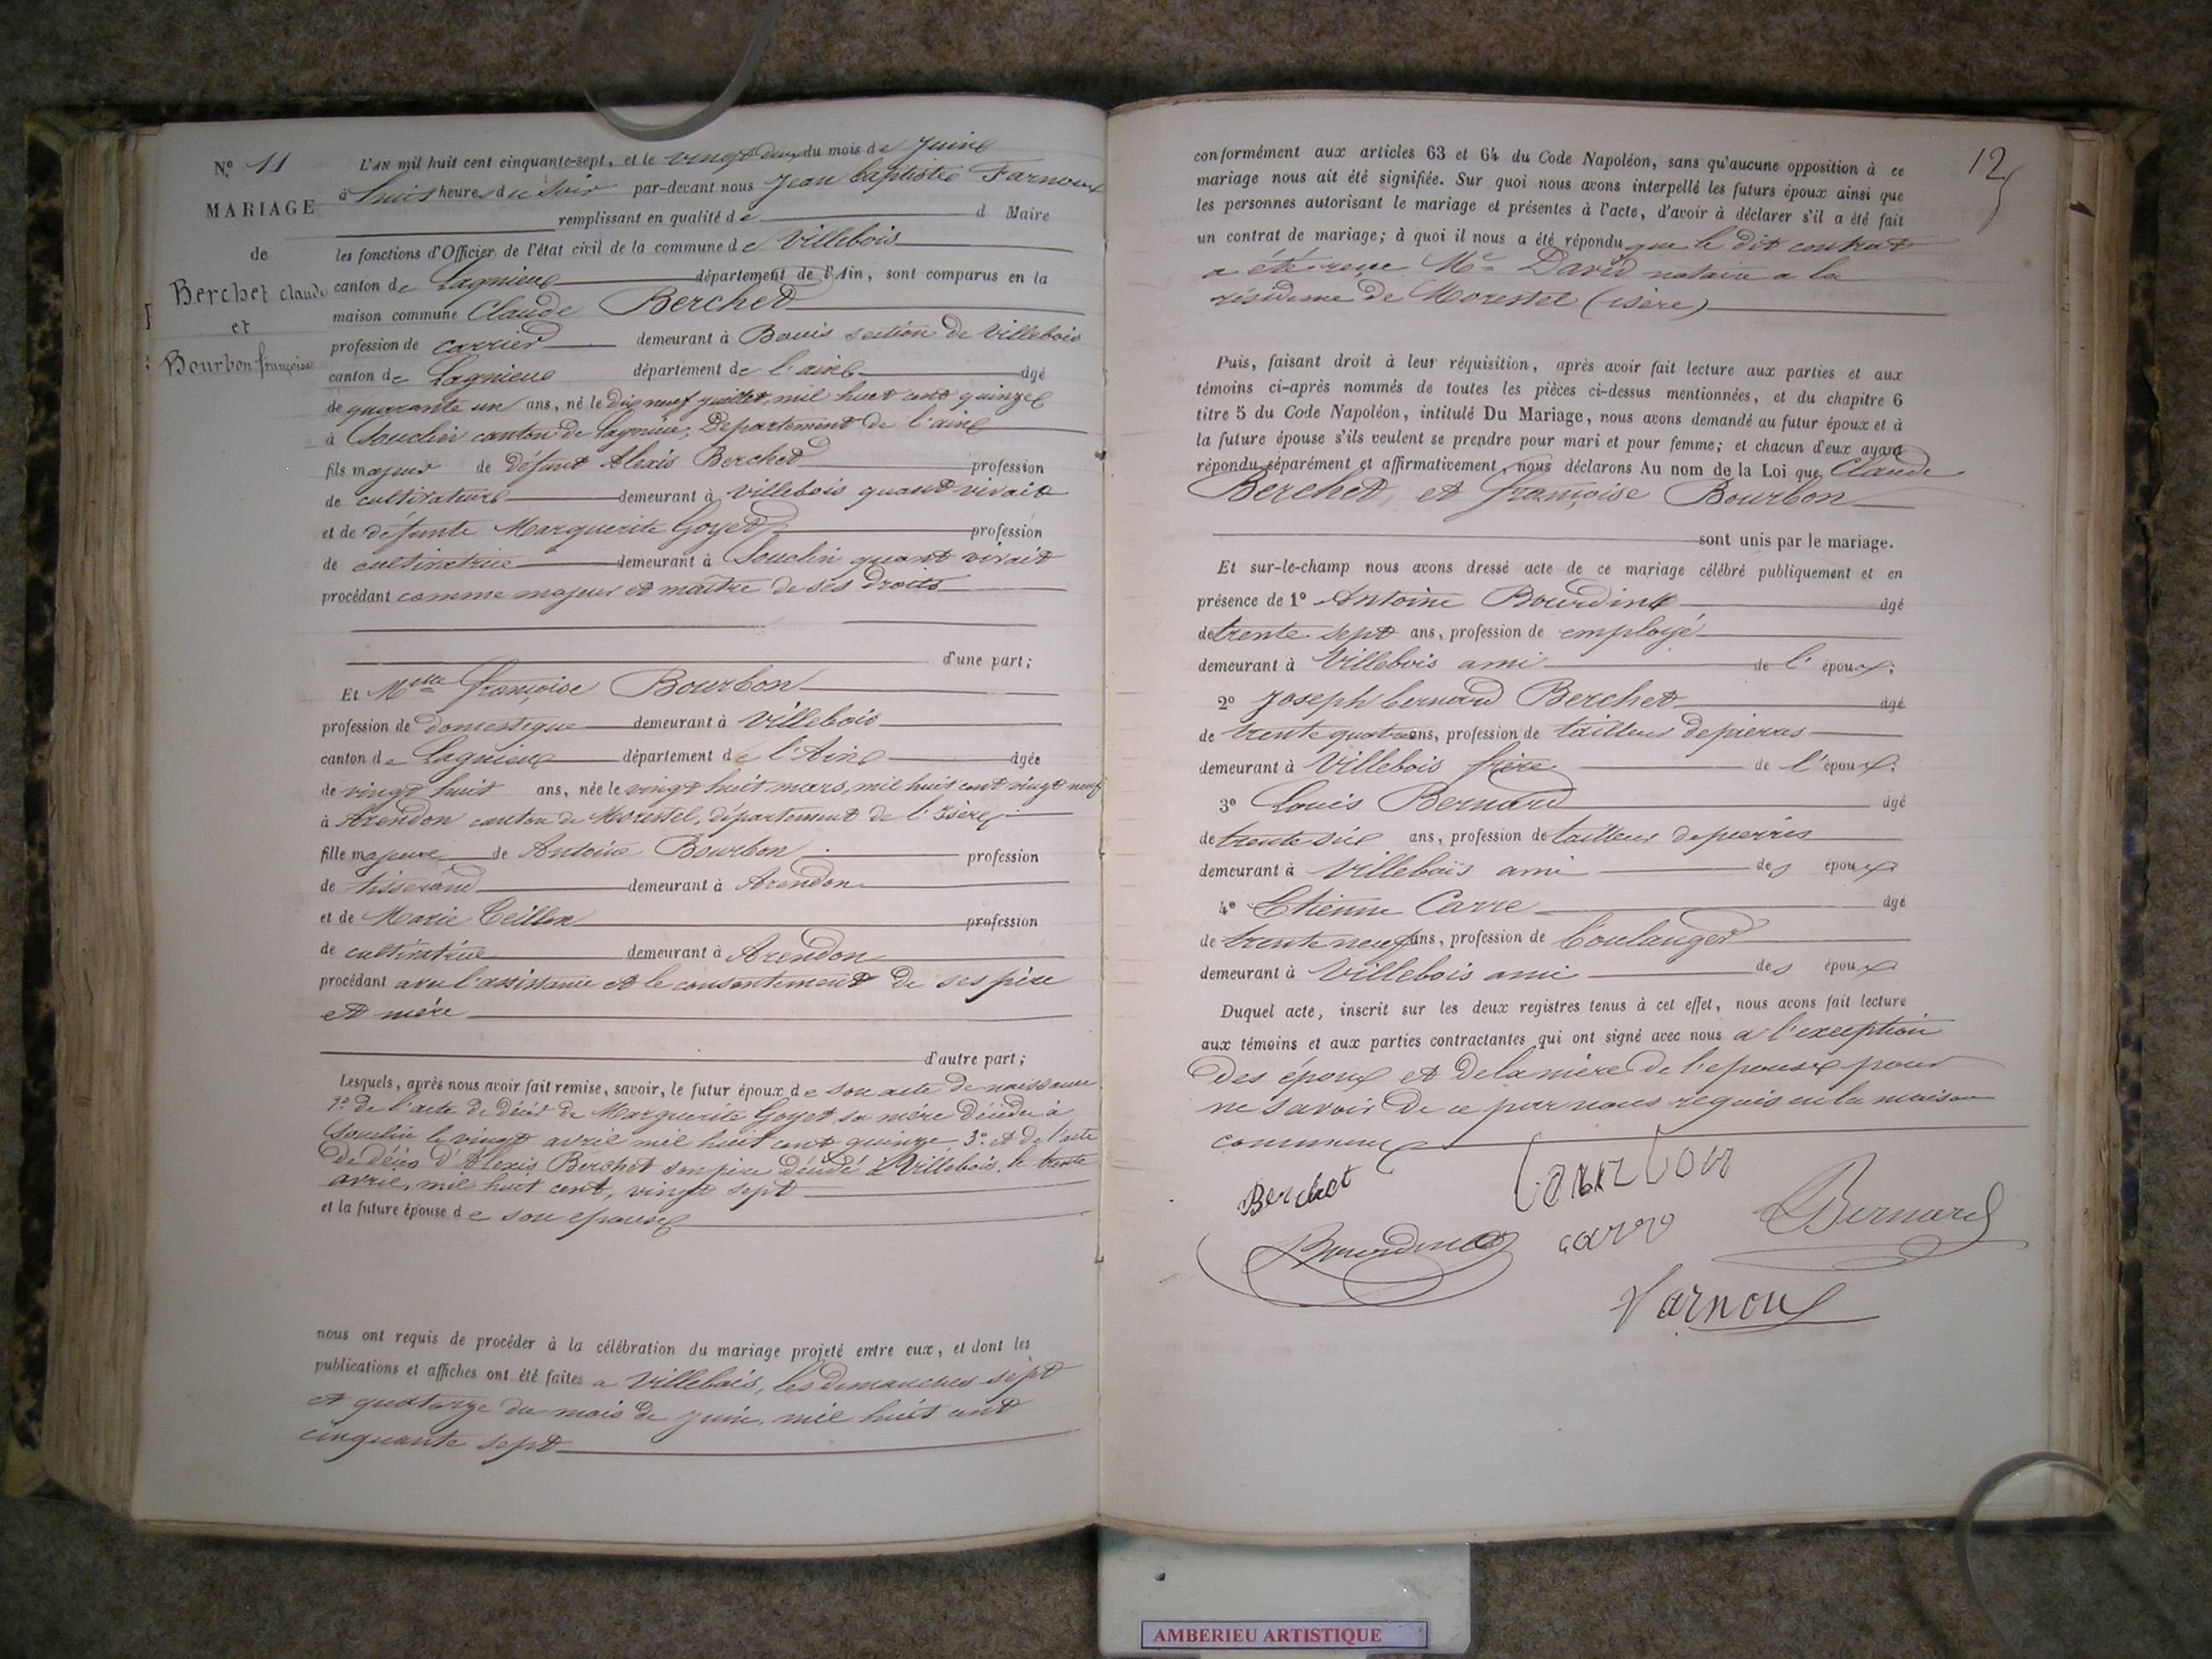 N.º 11
MARIAGE
de
Berchet claude
et
Bourbon françoise
L'AN mil huit cent cinquante-sept, et le vingt deux du mois de Juin
à huit heures du Soir par-devant nous Jean baptiste Farnoux
remplissant en qualité de d Maire
les fonctions d'Officier de l'état civil de la commune de Villebois
canton de Lagnieu département de l'Ain, sont comparus en la
maison commune Claude Berchet
profession de carrier demeurant à Bouis section de Villebois
canton de Lagnieu département de l'ain âgé
de quarante un ans, né le Dix neuf juillet, mil huit cent quinze
à Souclin canton de Lagnieu, Departement de l'ain
fils majeur de défunt Alexis Berchet profession
de cultivateur demeurant à Villebois quand vivait
et de défunte Marguerite Goyet profession
de cultivatrice demeurant à Souclin quant vivait
procédant comme majeur et maître de ses Droits
d'une part;
Et Melle françoise Bourbon
profession de domestique demeurant à Villebois
canton de Lagnieu département de l'Ain âgée
de vingt huit ans, née le vingt huit mars, mil huit cent vingt neuf
à Arendon canton de Morestel, département de l'Isère
fille majeure de Antoine Bourbon profession
de tisserand demeurant à Arendon
et de Marie Teillon profession
de cultivatrice demeurant à Arendon
procédant avec l'assistance et le consentement de ses père
et mére
d'autre part;
Lesquels, après nous avoir fait remise, savoir, le futur époux de son acte de naissance
2º de l'acte de décès de Marguerite Goyet sa mère décédée à
Souclin le vingt avril mil huit cent quinze 3º et de l'acte
de décès d'Alexis Berchet son père décédé à Villebois, le trente
avril, mil huit cent, vingt sept
et la future épouse de son epouse
nous ont requis de procéder à la célébration du mariage projeté entre eux, et dont les
publications et affiches ont été faites a Villebois, les dimanches sept
et quatorze du mois de juin, mil huit cent
cinquante sept
12
conformément aux articles 63 et 64 du Code Napoléon, sans qu'aucune opposition à ce
mariage nous ait été signifiée. Sur quoi nous avons interpellé les futurs époux ainsi que
les personnes autorisant le mariage et présentes à l'acte, d'avoir à déclarer s'il a été fait
un contrat de mariage; à quoi il nous a été répondu que le dit contrat
a été reçu Me David notaire a la
résidence de Morestel (isère)
Puis, faisant droit à leur réquisition, après avoir fait lecture aux parties et aux
témoins ci-après nommés de toutes les pièces ci-dessus mentionnées, et du chapitre 6
titre 5 du Code Napoléon, intitulé Du Mariage, nous avons demandé au futur époux et à
la future épouse s'ils veulent se prendre pour mari et pour femme; et chacun d'eux ayant
répondu séparément et affirmativement, nous déclarons Au nom de la Loi que Claude
Berchet, et françoise Bourbon
sont unis par le mariage.
Et sur-le-champ nous avons dressé acte de ce mariage célébré publiquement et en
présence de 1º Antoine Bourdin âgé
de trente sept ans, profession de employé
demeurant à Villebois ami de l'époux;
2º Joseph bernard Berchet âgé
de trente quatre ans, profession de tailleur de pierres
demeurant à Villebois frère de l'époux;
3º Louis Bernard âgé
de trente six ans, profession de tailleur de pierres
demeurant à Villebois ami des époux
4º Etienne Carre âgé
de trente neuf ans, profession de boulanger
demeurant à Villebois ami des époux
Duquel acte, inscrit sur les deux registres tenus à cet effet, nous avons fait lecture
aux témoins et aux parties contractantes qui ont signé avec nous a l'exception
des époux et de la mère de l'epouse pour
ne savoir de ce par nous requis en la maison
commune
Berchet bourbon
Bourdin carre Bernard
Farnoux
AMBERIEU ARTISTIQUE